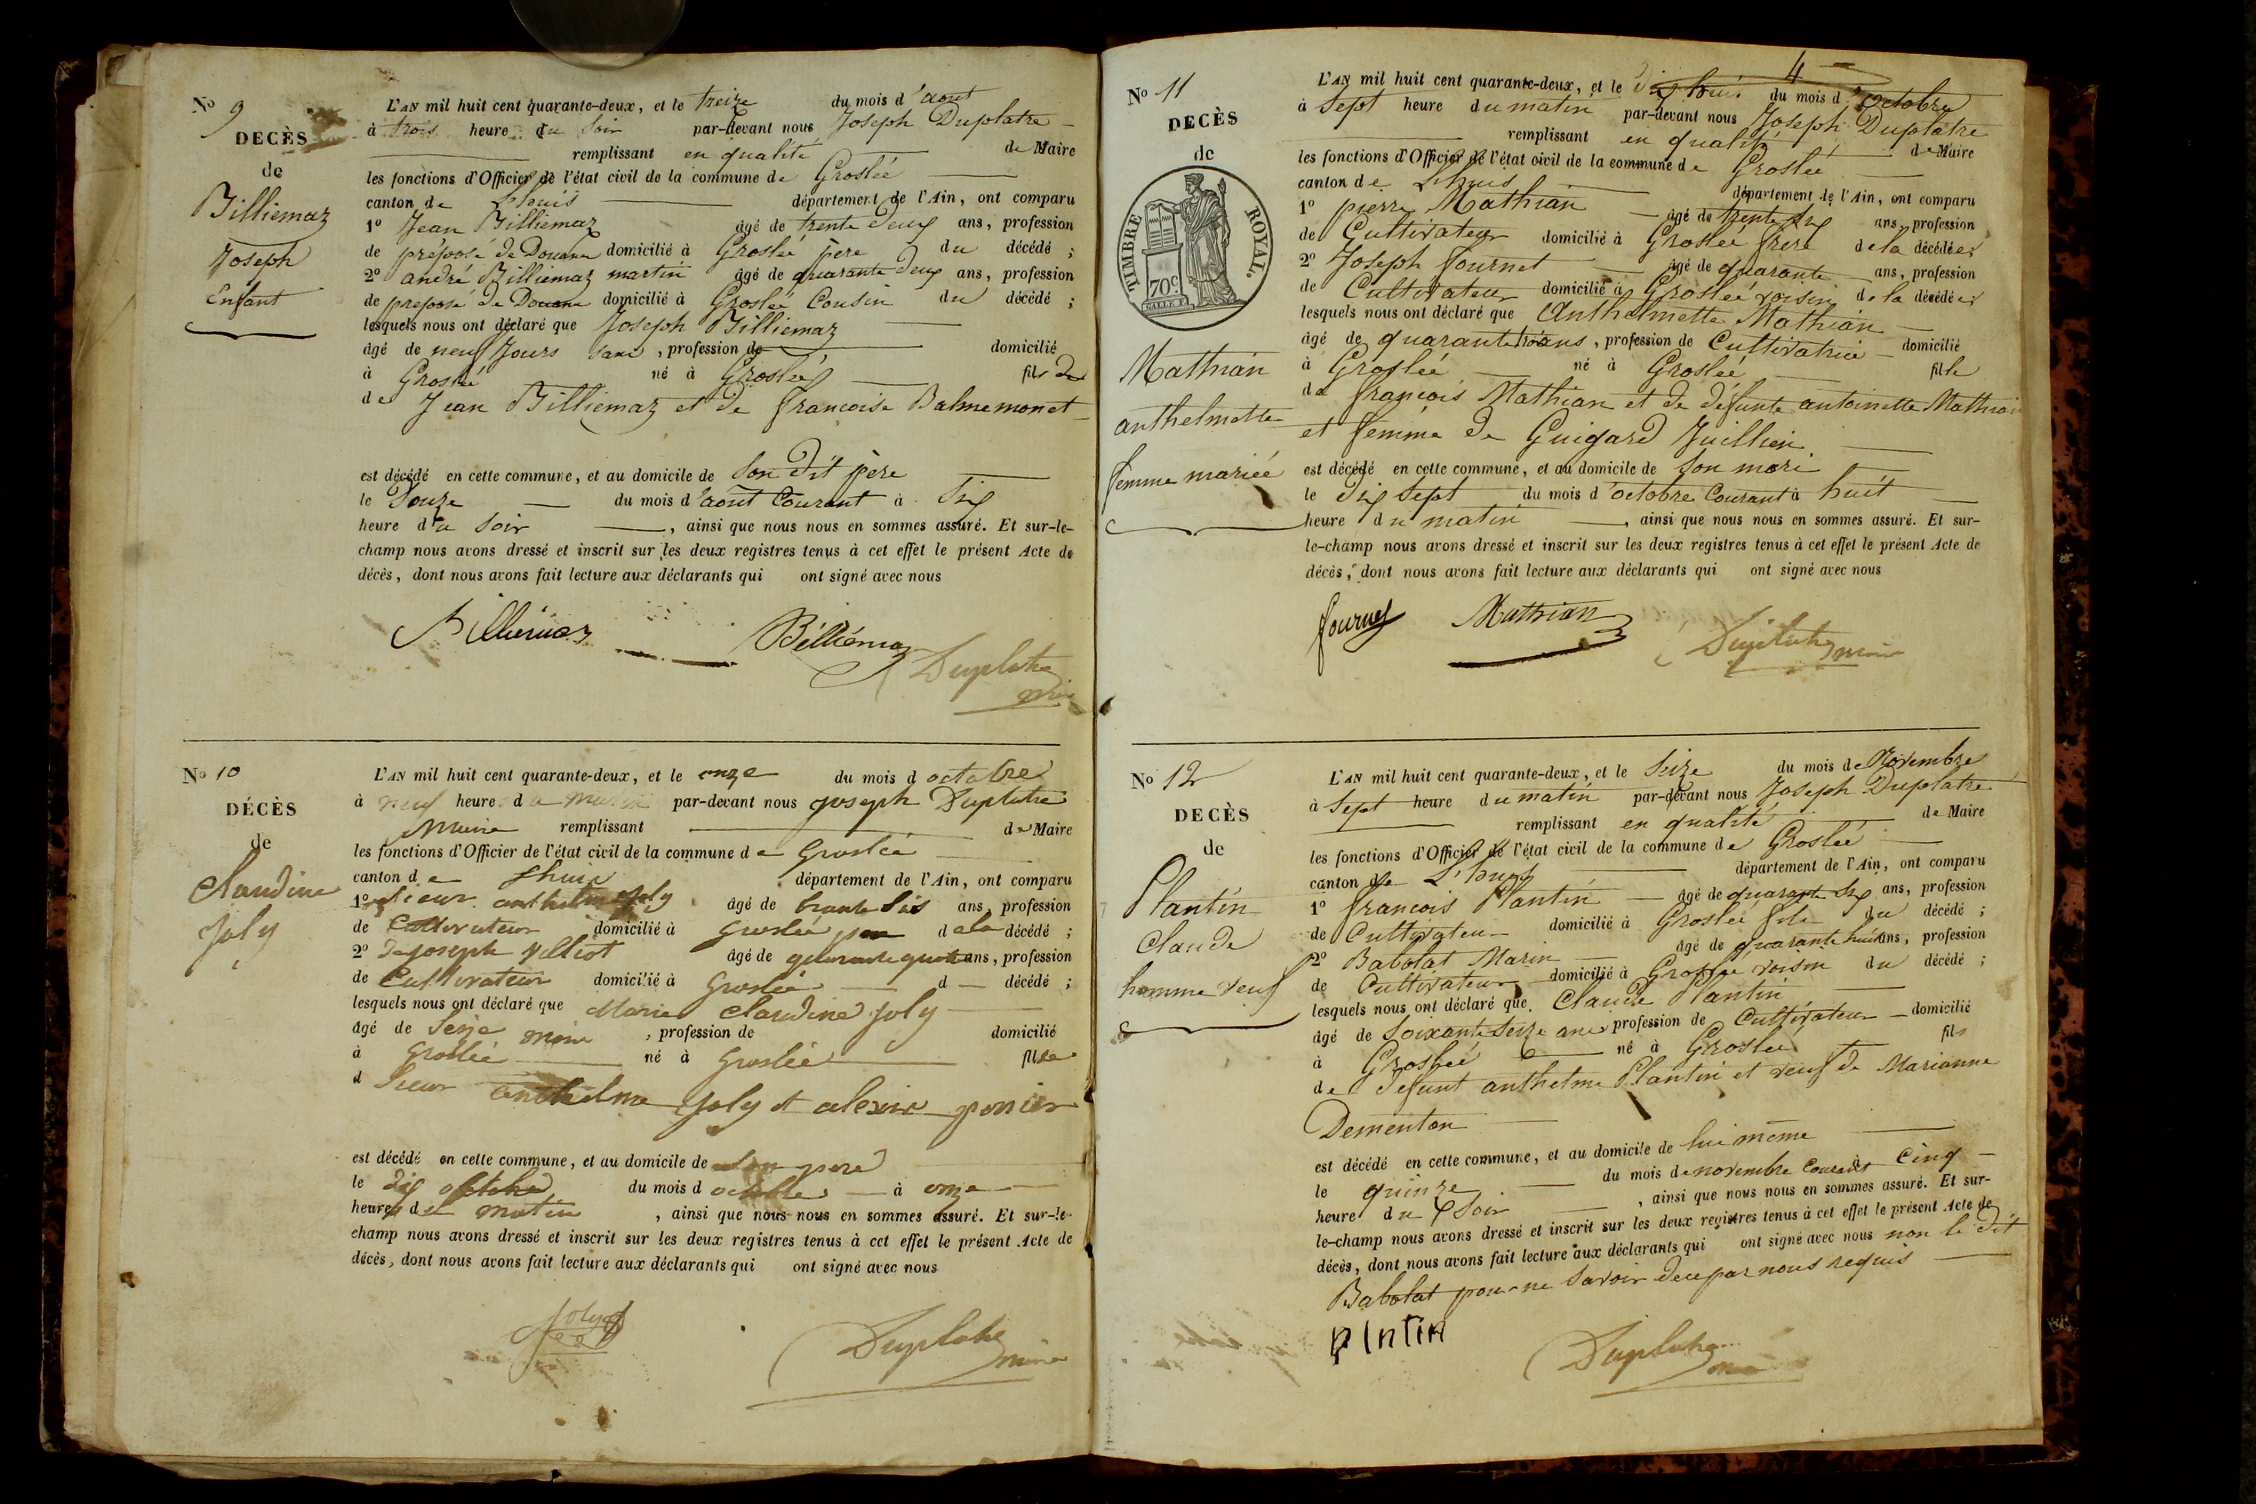 No 9
DECÈS
de
Billiemaz
Joseph
Enfant
L'AN mil huit cent quarante-deux, et le treize du mois d'aout
à trois heure du soir par-devant nous Joseph Duplatre
remplissant en qualité de Maire
les fonctions d'Officier de l'état civil de la commune de Groslée
canton de Lhuis département de l'Ain, ont comparu
1º Jean Billiemaz âgé de trente deux ans, profession
de préposé de Douane domicilié à Groslée père du décédé ;
2º andré Billiemaz martin âgé de quarante deux ans, profession
de preposé de Douane domicilié à Groslée Cousin du décédé ;
lesquels nous ont déclaré que Joseph Billiemaz
âgé de neuf Jours , profession de domicilié
à Groslée né à Groslée fils
de Jean Billiemaz et de francoise Balmemonet
est décédé en cette commune, et au domicile de Son dit père
le Douze du mois d'aout Courant à Six
heure du Soir , ainsi que nous nous en sommes assuré. Et sur-le-
champ nous avons dressé et inscrit sur les deux registres tenus à cet effet le présent Acte de
décès, dont nous avons fait lecture aux déclarants qui ont signé avec nous
Billiemaz Billiémaz Duplatre
maire
No 10
DÉCÈS
de
Claudine
Joly
L'AN mil huit cent quarante-deux, et le onze du mois d octobre
à neuf heures du matin par-devant nous joseph Duplatre
Maire remplissant de Maire
les fonctions d'Officier de l'état civil de la commune de Groslée
canton de Lhuis département de l'Ain, ont comparu
1º Sieur anthelme joly âgé de trante Six ans, profession
de Cultivateur domicilié à Groslée père de la décédé ;
2º joseph âgé de quarante quatre ans, profession
de Cultivateur domicilié à Groslée d décédé ;
lesquels nous ont déclaré que Marie Claudine joly
âgé de Seize mois , profession de domicilié
à Groslée né à Groslée fille
d Sieur anthelme joly et alexie
est décédé en cette commune, et au domicile de Son pere
le dix octobre du mois d octobre à onze
heures du matin , ainsi que nous nous en sommes assuré. Et sur-le-
champ nous avons dressé et inscrit sur les deux registres tenus à cet effet le présent Acte de
décès, dont nous avons fait lecture aux déclarants qui ont signé avec nous
Joly Duplatre
maire
4
No 11
DECÈS
de
TIMBRE ROYAL.
70c
Mathian
anthelmette
femme mariée
L'AN mil huit cent quarante-deux, et le dix huit du mois d'octobre
à Sept heure du matin par-devant nous Joseph Duplatre
remplissant en qualité de Maire
les fonctions d'Officier de l'état civil de la commune de Groslée
canton de Lhuis département de l'Ain, ont comparu
1º pierre Mathian âgé de trente six ans, profession
de Cultivateur domicilié à Groslée frère de la décédée ;
2º Joseph fournet âgé de quarante ans, profession
de Cultivateur domicilié à Groslée voisin de la décédée ;
lesquels nous ont déclaré que Anthelmette Mathian
âgé de quarante trois ans, profession de Cultivatrice domicilié
à Groslée né à Groslée fille
de françois Mathian et de défunte antoinette Mathian
et femme de Guigard Juillien
est décédé en cette commune, et au domicile de Son mari
le dix Sept du mois d'octobre Courant à huit
heure du matin , ainsi que nous nous en sommes assuré. Et sur-
le-champ nous avons dressé et inscrit sur les deux registres tenus à cet effet le présent Acte de
décès, dont nous avons fait lecture aux déclarants qui ont signé avec nous
fournet Mathian Duplatre maire
No 12
DECÈS
de
Plantin
Claude
homme veuf
L'AN mil huit cent quarante-deux, et le Seize du mois de Novembre
à Sept heure du matin par-devant nous Joseph Duplatre
remplissant en qualité de Maire
les fonctions d'Officier de l'état civil de la commune de Groslée
canton de Lhuis département de l'Ain, ont comparu
1º francois Plantin âgé de quarante six ans, profession
de Cultivateur domicilié à Groslée fils du décédé ;
2º Babolat Marin âgé de quarante huit ans, profession
de Cultivateur domicilié à Groslée voisin du décédé ;
lesquels nous ont déclaré que Claude Plantin
âgé de Soixante Seize ans profession de Cultivateur domicilié
à Groslée né à Groslée fils
de défunt anthelme Plantin et veuf de Marianne
Dementon
est décédé en cette commune, et au domicile de lui même
le quinze du mois de novembre Courant à Cinq
heure du Soir , ainsi que nous nous en sommes assuré. Et sur-
le-champ nous avons dressé et inscrit sur les deux registres tenus à cet effet le présent Acte de
décès, dont nous avons fait lecture aux déclarants qui ont signé avec nous non le dit
Babolat pour ne Savoir de ce par nous requis
plntin Duplatre
maire